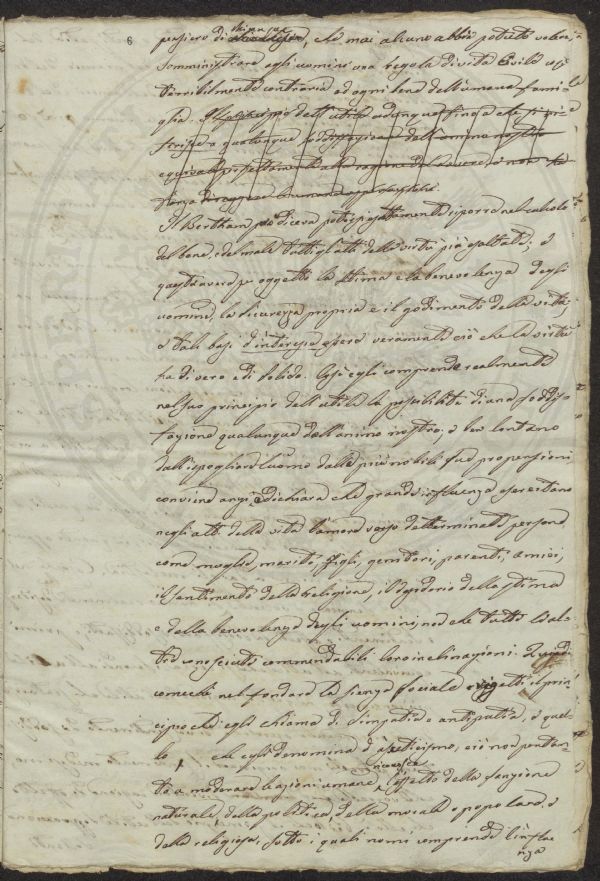 6
pensiero di chiunque, che mai alcuno abbia potuto volere
somministrare agli uomini una regola di vita civile sì
terribilmente contraria ad ogni bene dell'umana fami-
glia. Il principio dell'utile adunque finga che si ri-
ferisce a qualunque soddisfazione dell'animo nostro
equivale alla ragione
Il Bentham poi diceva potersi esattamente riporre nel calcolo
del bene, e del male tutti gli atti della virtù più esaltata; e
questa avere per oggetto la stima e la benevolenza degli
uomini, la sicurezza propria e il godimento della virtù;
e tali basi d'interesse essere veramente ciò che la virtù
ha di vero e di solido. Così egli comprende realmente
nel suo principio dell'utile la possibilità di una soddis-
fazione qualunque dell'animo nostro; e ben lontano
dall'ispogliare l'uomo dalle più nobili sue propensioni,
conviene anzi, e dichiara che grande influenza esercitano
negli atti della vita l'amore verso determinate persone,
come moglie, marito, figli, genitori, parenti, amici,
il sentimento della religione, il desiderio della stima
e della benevolenza degli uomini, non che tutte l'al-
tre conosciute commendabili loro inclinazioni. Quindi
comechè nel fondare la scienza sociale rigetti il prin-
cipio che egli chiama di simpatia e antipatia, e quel-
lo che egli denomina d'ascetismo, ciò non pertan-
to a moderare le azioni umane riconosce l'effetto della sanzione
naturale, della politica, della morale o popolare, e
della religiosa, sotto i quali nomi comprende l'influe
nza